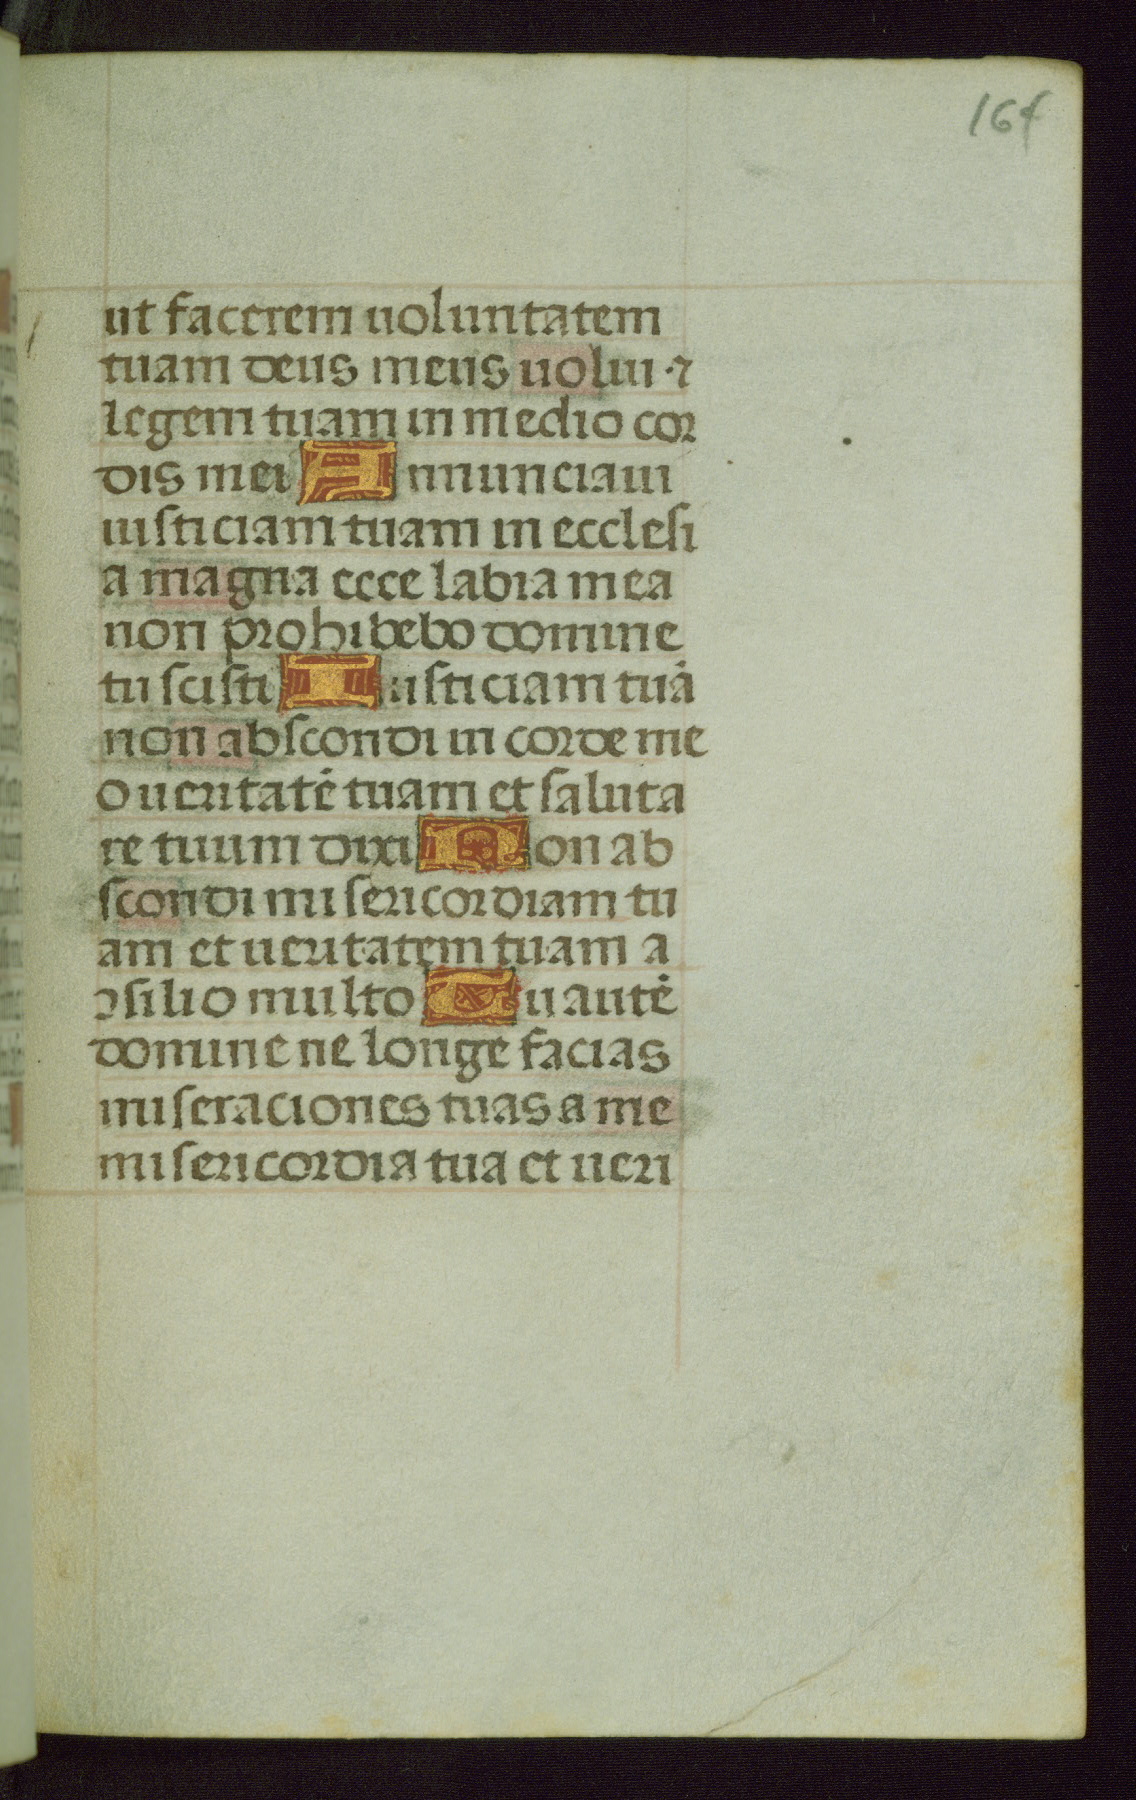 164
ut facerem uoluntatem
tuam deus meus uolui ⁊
legem tuam in medio cor
dis mei Annunciaui
iusticiam tuam in ecclesi
a magna ecce labia mea
non prohibebo domine
tu scisti Iusticiam tuā
non abscondi in corde me
o ueritatē tuam et saluta
re tuum dixi Non ab
scondi misericordiam tu
am et ueritatem tuam a
ↄsilio multo Tu autē
domine ne longe facias
miseraciones tuas a me
misericordia tua et ueri